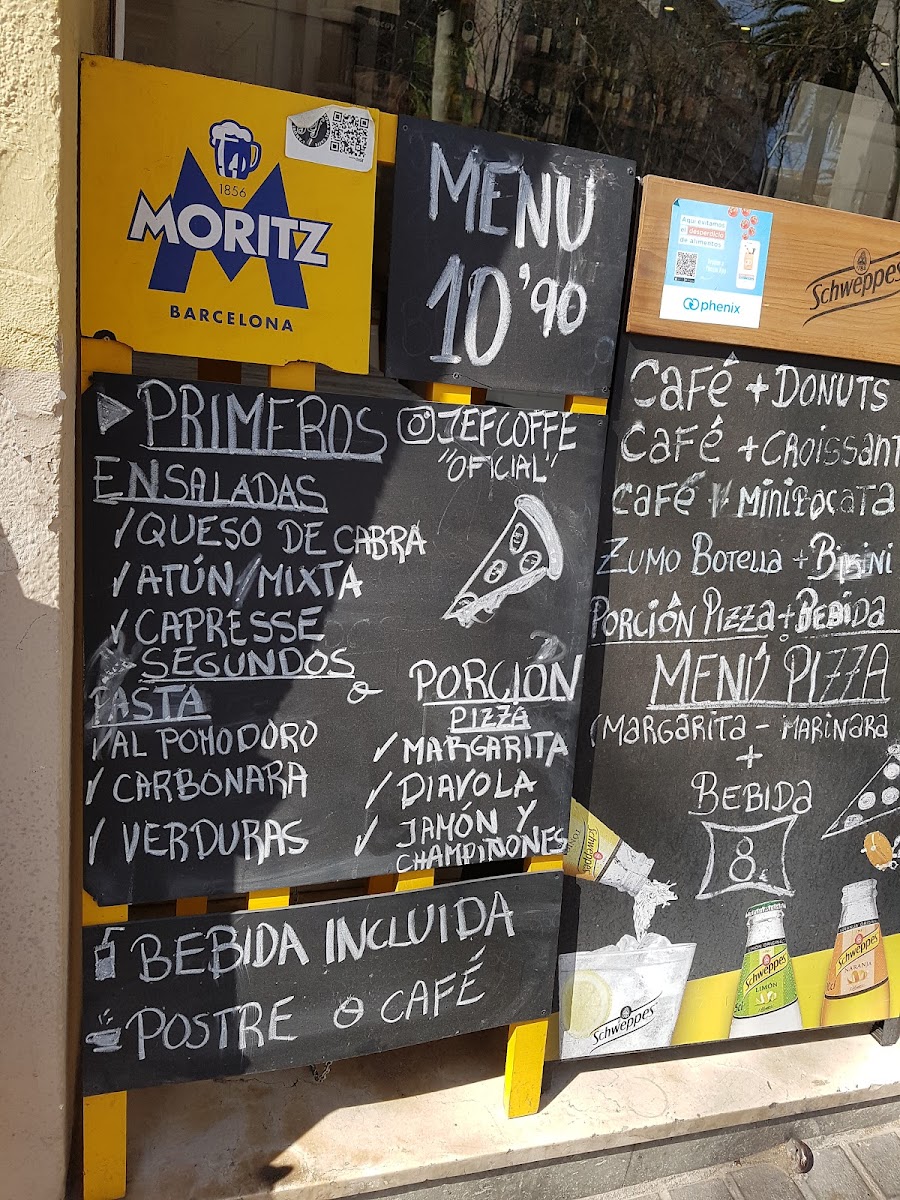 1856
MORITZ
BARCELONA
MENU
10'90
PRIMEROS
JEFCOFFE
"OFICIAL"
ENSALADAS
✓QUESO DE CABRA
✓ATÚN/MIXTA
✓CAPRESSE
SEGUNDOS
PASTA
✓AL POMODORO
✓CARBONARA
✓VERDURAS
O
PORCIÓN
PIZZA
✓MARGARITA
✓DIAVOLA
✓JAMÓN Y
CHAMPIÑONES
BEBIDA INCLUIDA
POSTRE O CAFÉ
Aquí evitamos
el desperdicio
de alimentos
phenix
Schweppes
Café + DONUTS
Café + CROISSANT
Café + MINIBOCATA
ZUMO BOTELLA + BIKINI
PORCIÓN PIZZA + BEBIDA
MENÚ PIZZA
(MARGARITA - MARINARA
+
BEBIDA
8€
Schweppes
Schweppes
Schweppes
LIMÓN
Schweppes
NARANJA